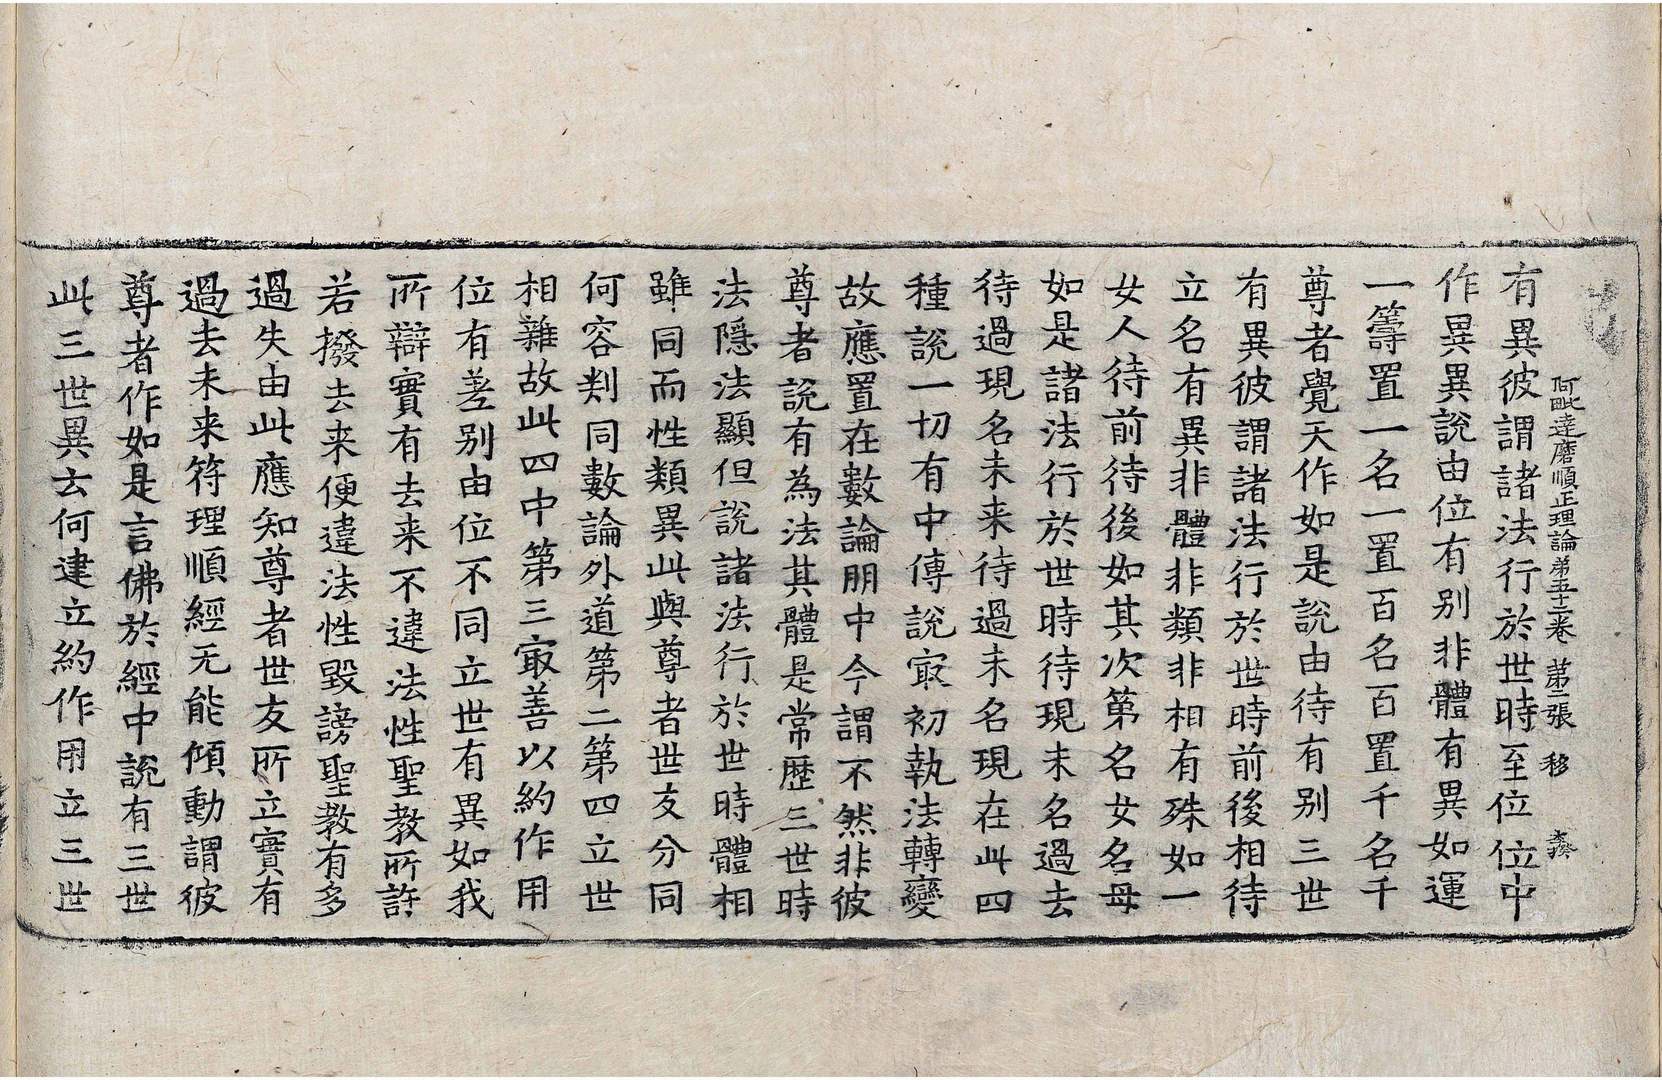 阿毗達磨順正理論第五十二卷 第二張 移
有異彼謂諸法行於世時至位位中
作異異說由位有別非體有異如運
一籌置一名一置百名百置千名千
尊者覺天作如是說由待有別三世
有異彼謂諸法行於世時前後相待
立名有異非體非類非相有殊如一
女人待前待後如其次第名女名母
如是諸法行於世時待現未名過去
待過現名未來待過未名現在此四
種說一切有中傳說㝡初執法轉變
故應置在數論朋中今謂不然非彼
尊者說有為法其體是常歷三世時
法隱法顯但說諸法行於世時體相
雖同而性類異此與尊者世友分同
何容判同數論外道第二第四立世
相雜故此四中第三㝡善以約作用
位有差別由位不同立世有異如我
所辯實有去来不違法性聖教所許
若撥去来便違法性毀謗聖教有多
過失由此應知尊者世友所立實有
過去未来符理順經无能傾動謂彼
尊者作如是言佛於經中說有三世
此三世異云何建立約作用立三世